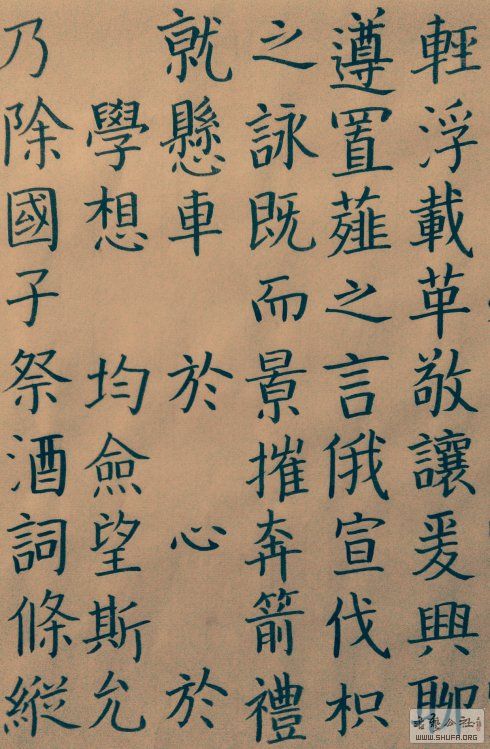 輕浮載革敬讓爰興聊
遵置薤之言俄宣伐枳
之詠既而景摧奔箭禮
就懸車 於 心 於
學想 均僉望斯允
乃除國子祭酒詞條縱
WWW.SHUFA.ORG